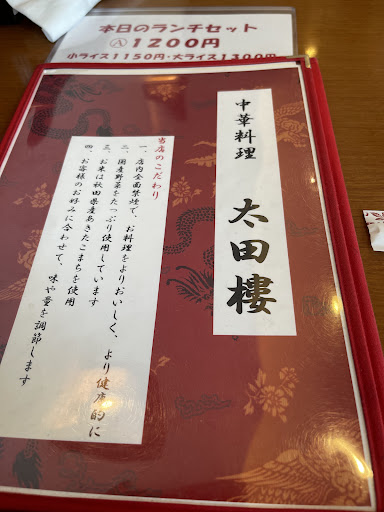 本日のランチセット
Ⓐ1200円
小ライス1150円・大ライス1300円
中華料理 太田樓
当店のこだわり
一、店内全面禁煙で、お料理をよりおいしく、より健康的に
二、国産野菜をたっぷり使用しています
三、お米は秋田県産あきたこまちを使用
四、お客様のお好みに合わせて、味や量を調節します